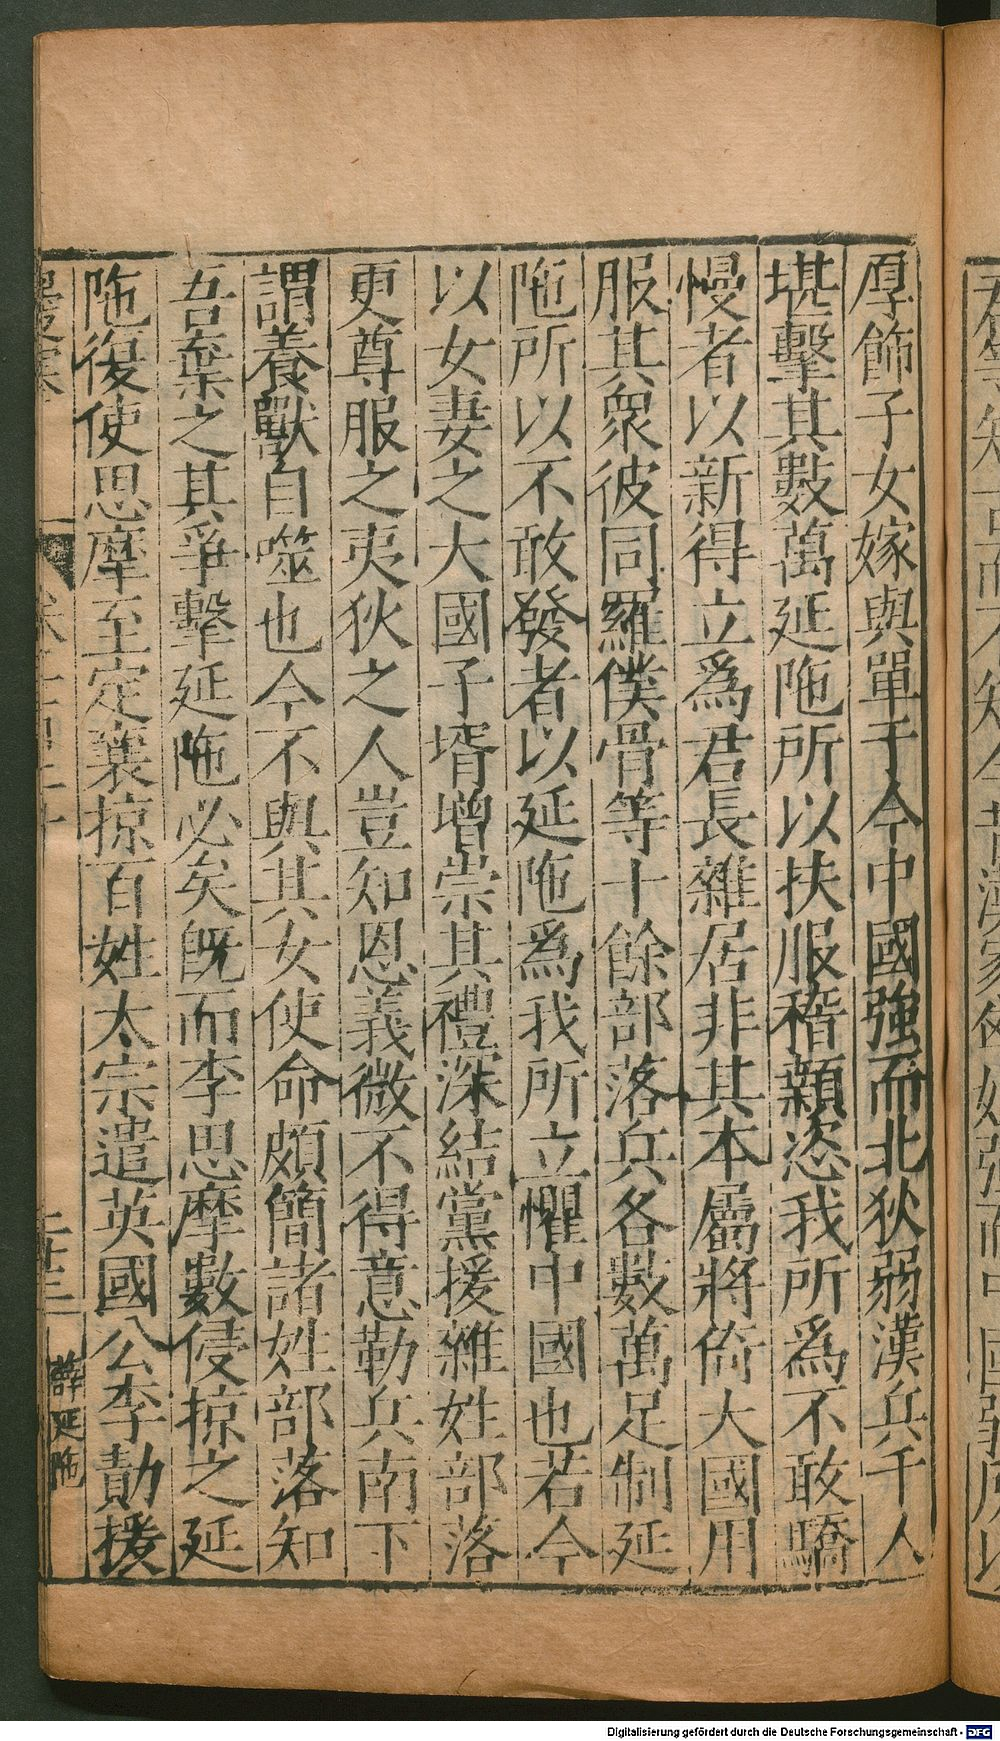 厚飾子女嫁與單于今中國強而北狄弱漢兵千人
堪擊其數萬延陁所以扶服稽顙恣我所爲不敢驕
慢者以新得立爲君長雜居非其本屬將倚大國用
服其衆彼同羅僕骨等十餘部落兵各數萬足制延
陁所以不敢發者以延陁爲我所立懼中國也若今
以女妻之大國子壻增崇其禮深結黨援雜姓部落
更尊服之夷狄之人豈知恩義微不得意勒兵南下
謂養獸自噬也今不與其女使命頗簡諸姓部落知
吾棄之其爭擊延陁必矣既而李思摩數侵掠之延
陁復使思摩至定襄掠百姓太宗遣英國公李勣援
薛延陁
Digitalisierung gefördert durch die Deutsche Forschungsgemeinschaft - DFG